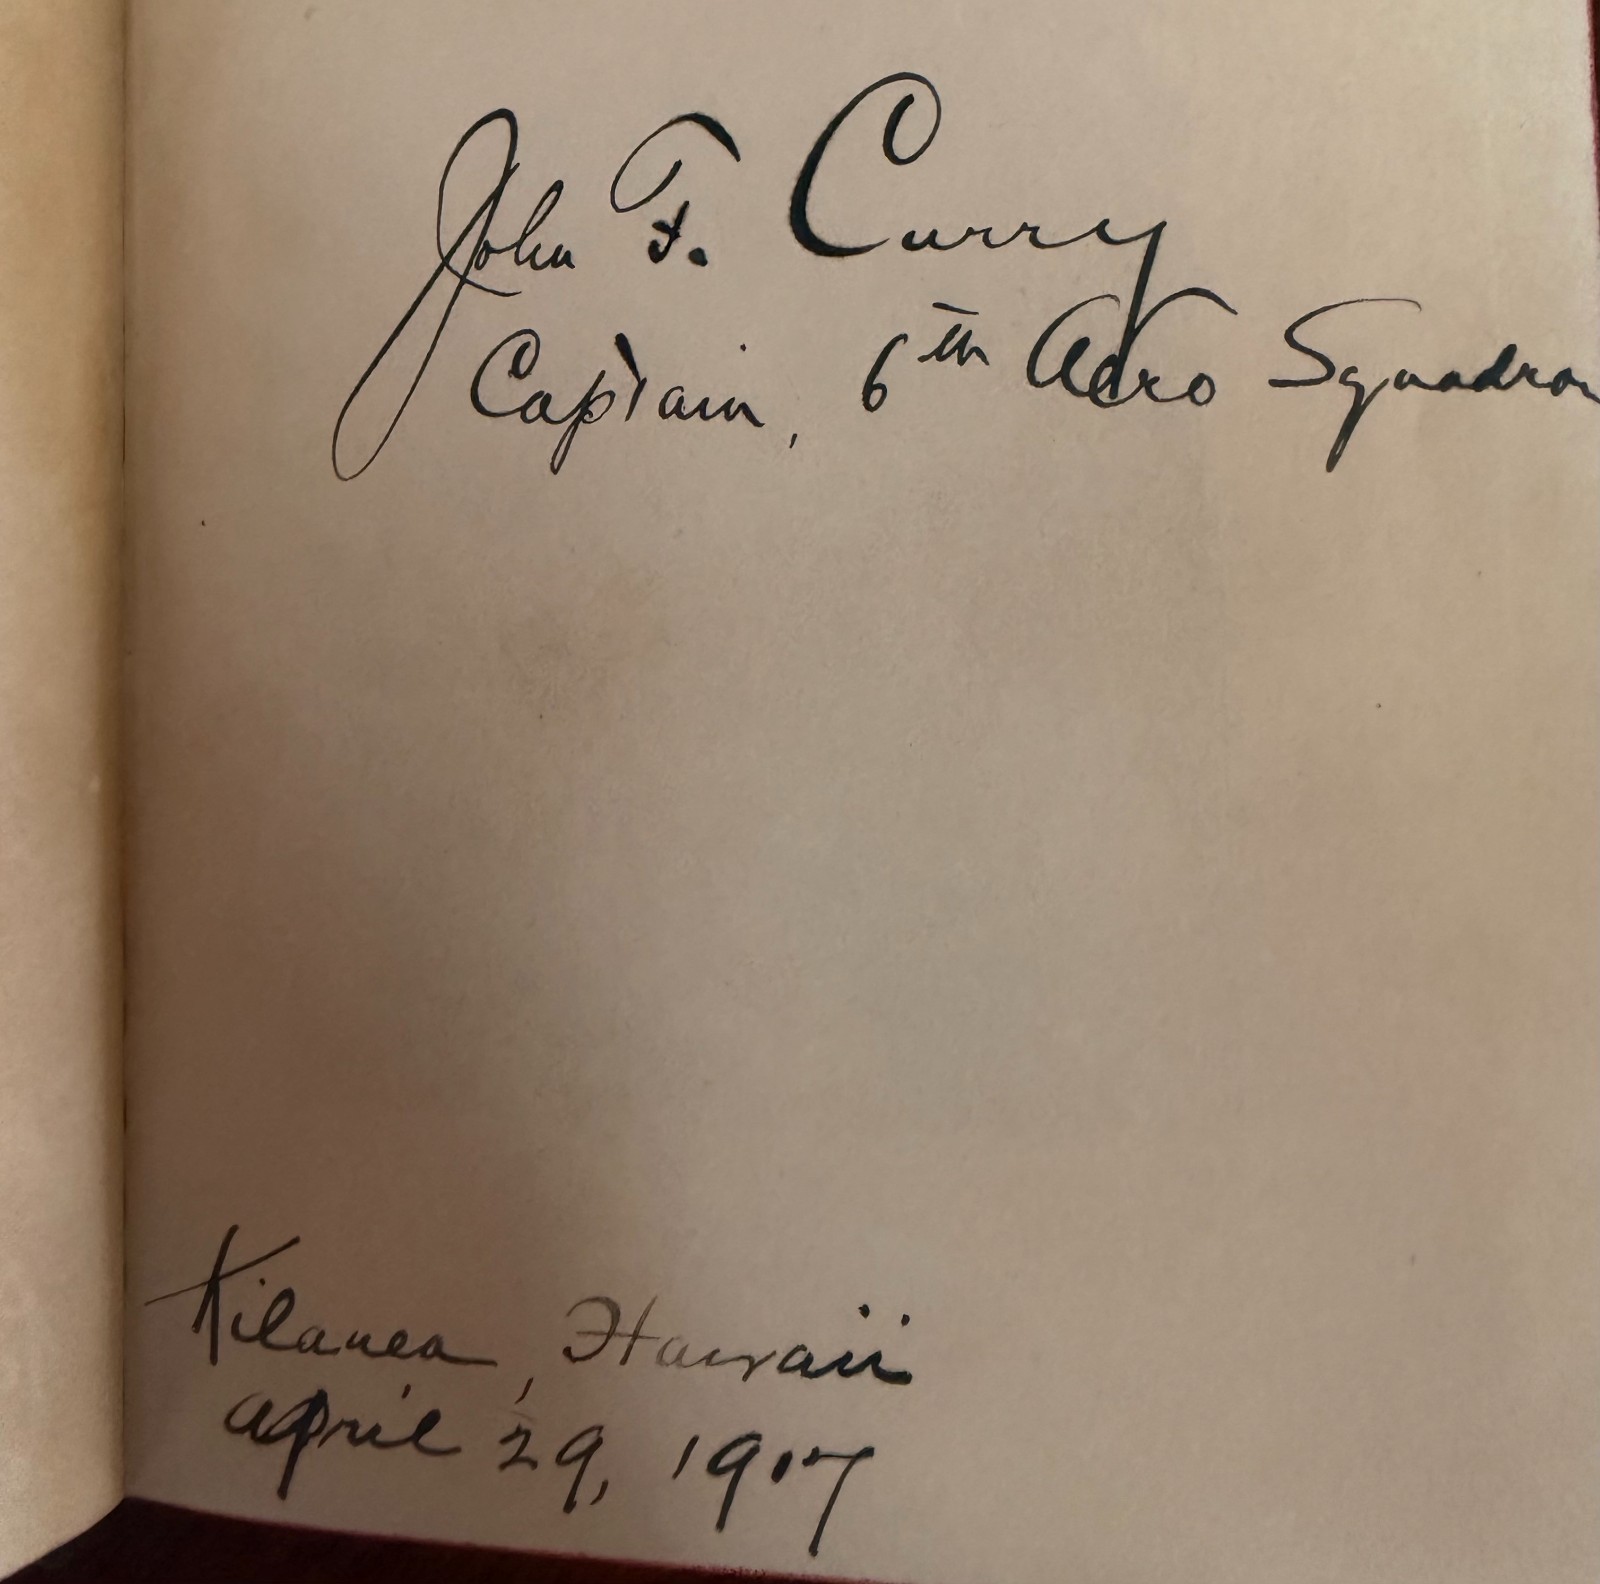 John F. Curry
Captain, 6th Aero Squadron
Kilauea, Hawaii
April 29, 1917